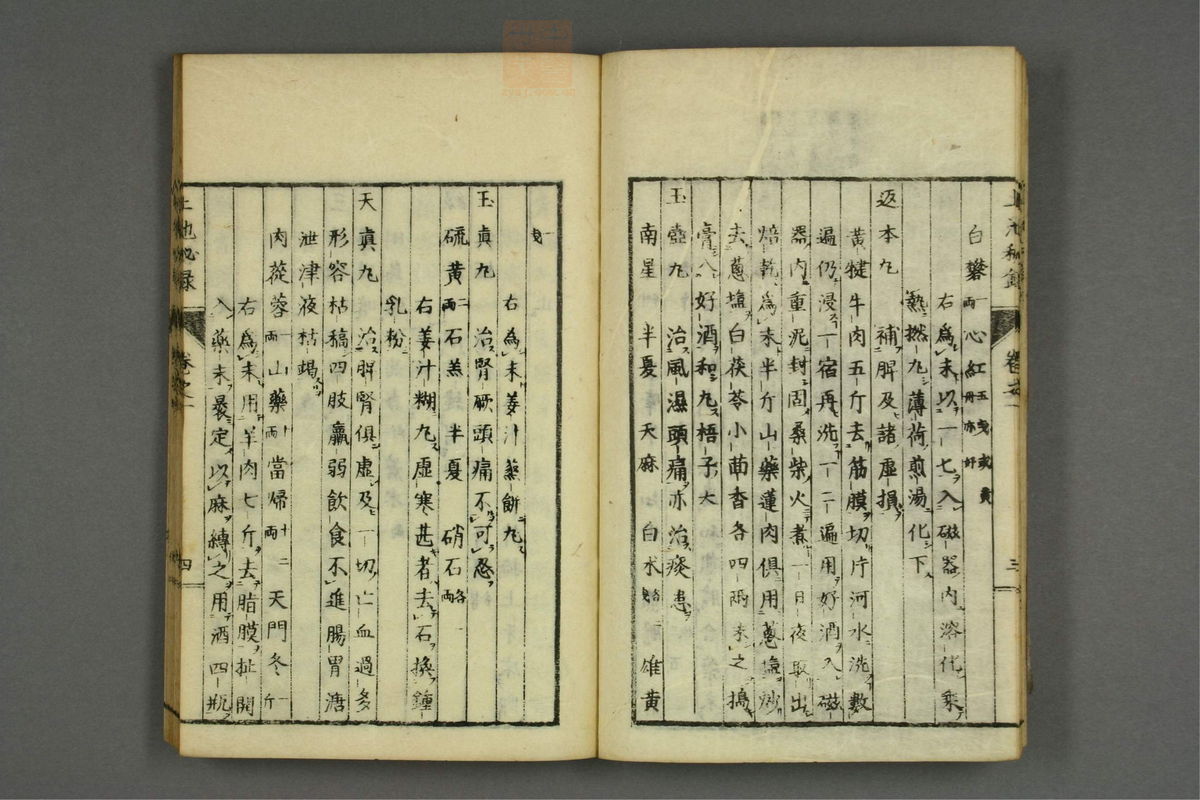 白礬一兩 心紅五戔或黃丹亦好
右爲末以一七入磁器內溶化乘
熱撚丸薄荷煎湯化下
返本丸 補脾及諸虛損
黃犍牛肉五斤去筋膜切片河水洗數
遍仍浸一宿再洗一二遍用好酒入磁
器內重泥封固桑柴火煮一日夜取出
焙乾爲末半斤山藥蓮肉俱用蔥塩炒
去蔥塩白茯苓小茴香各四兩末之搗
膏入好酒和丸梧子大
玉壺丸 治風濕頭痛亦治痰患
南星 半夏 天麻 白朮 雄黃
戔
右爲末姜汁蒸餅丸
玉眞丸 治腎厥頭痛不可忍
硫黃二兩 石羔 半夏 硝石各一兩
右姜汁糊丸虛寒甚者去石換鍾
乳粉
天眞丸 治脾腎俱虛及一切亡血過多
形容枯稿四肢羸弱飲食不進腸胃溏
泄津液枯竭
肉蓯蓉 山藥十兩 當歸十二兩 天門冬一斤
右爲末用羊肉七斤去脂膜扯開
入藥末最定以麻縛之用酒四瓶
上池秘錄 卷之一 三
上池秘錄 卷之一 四